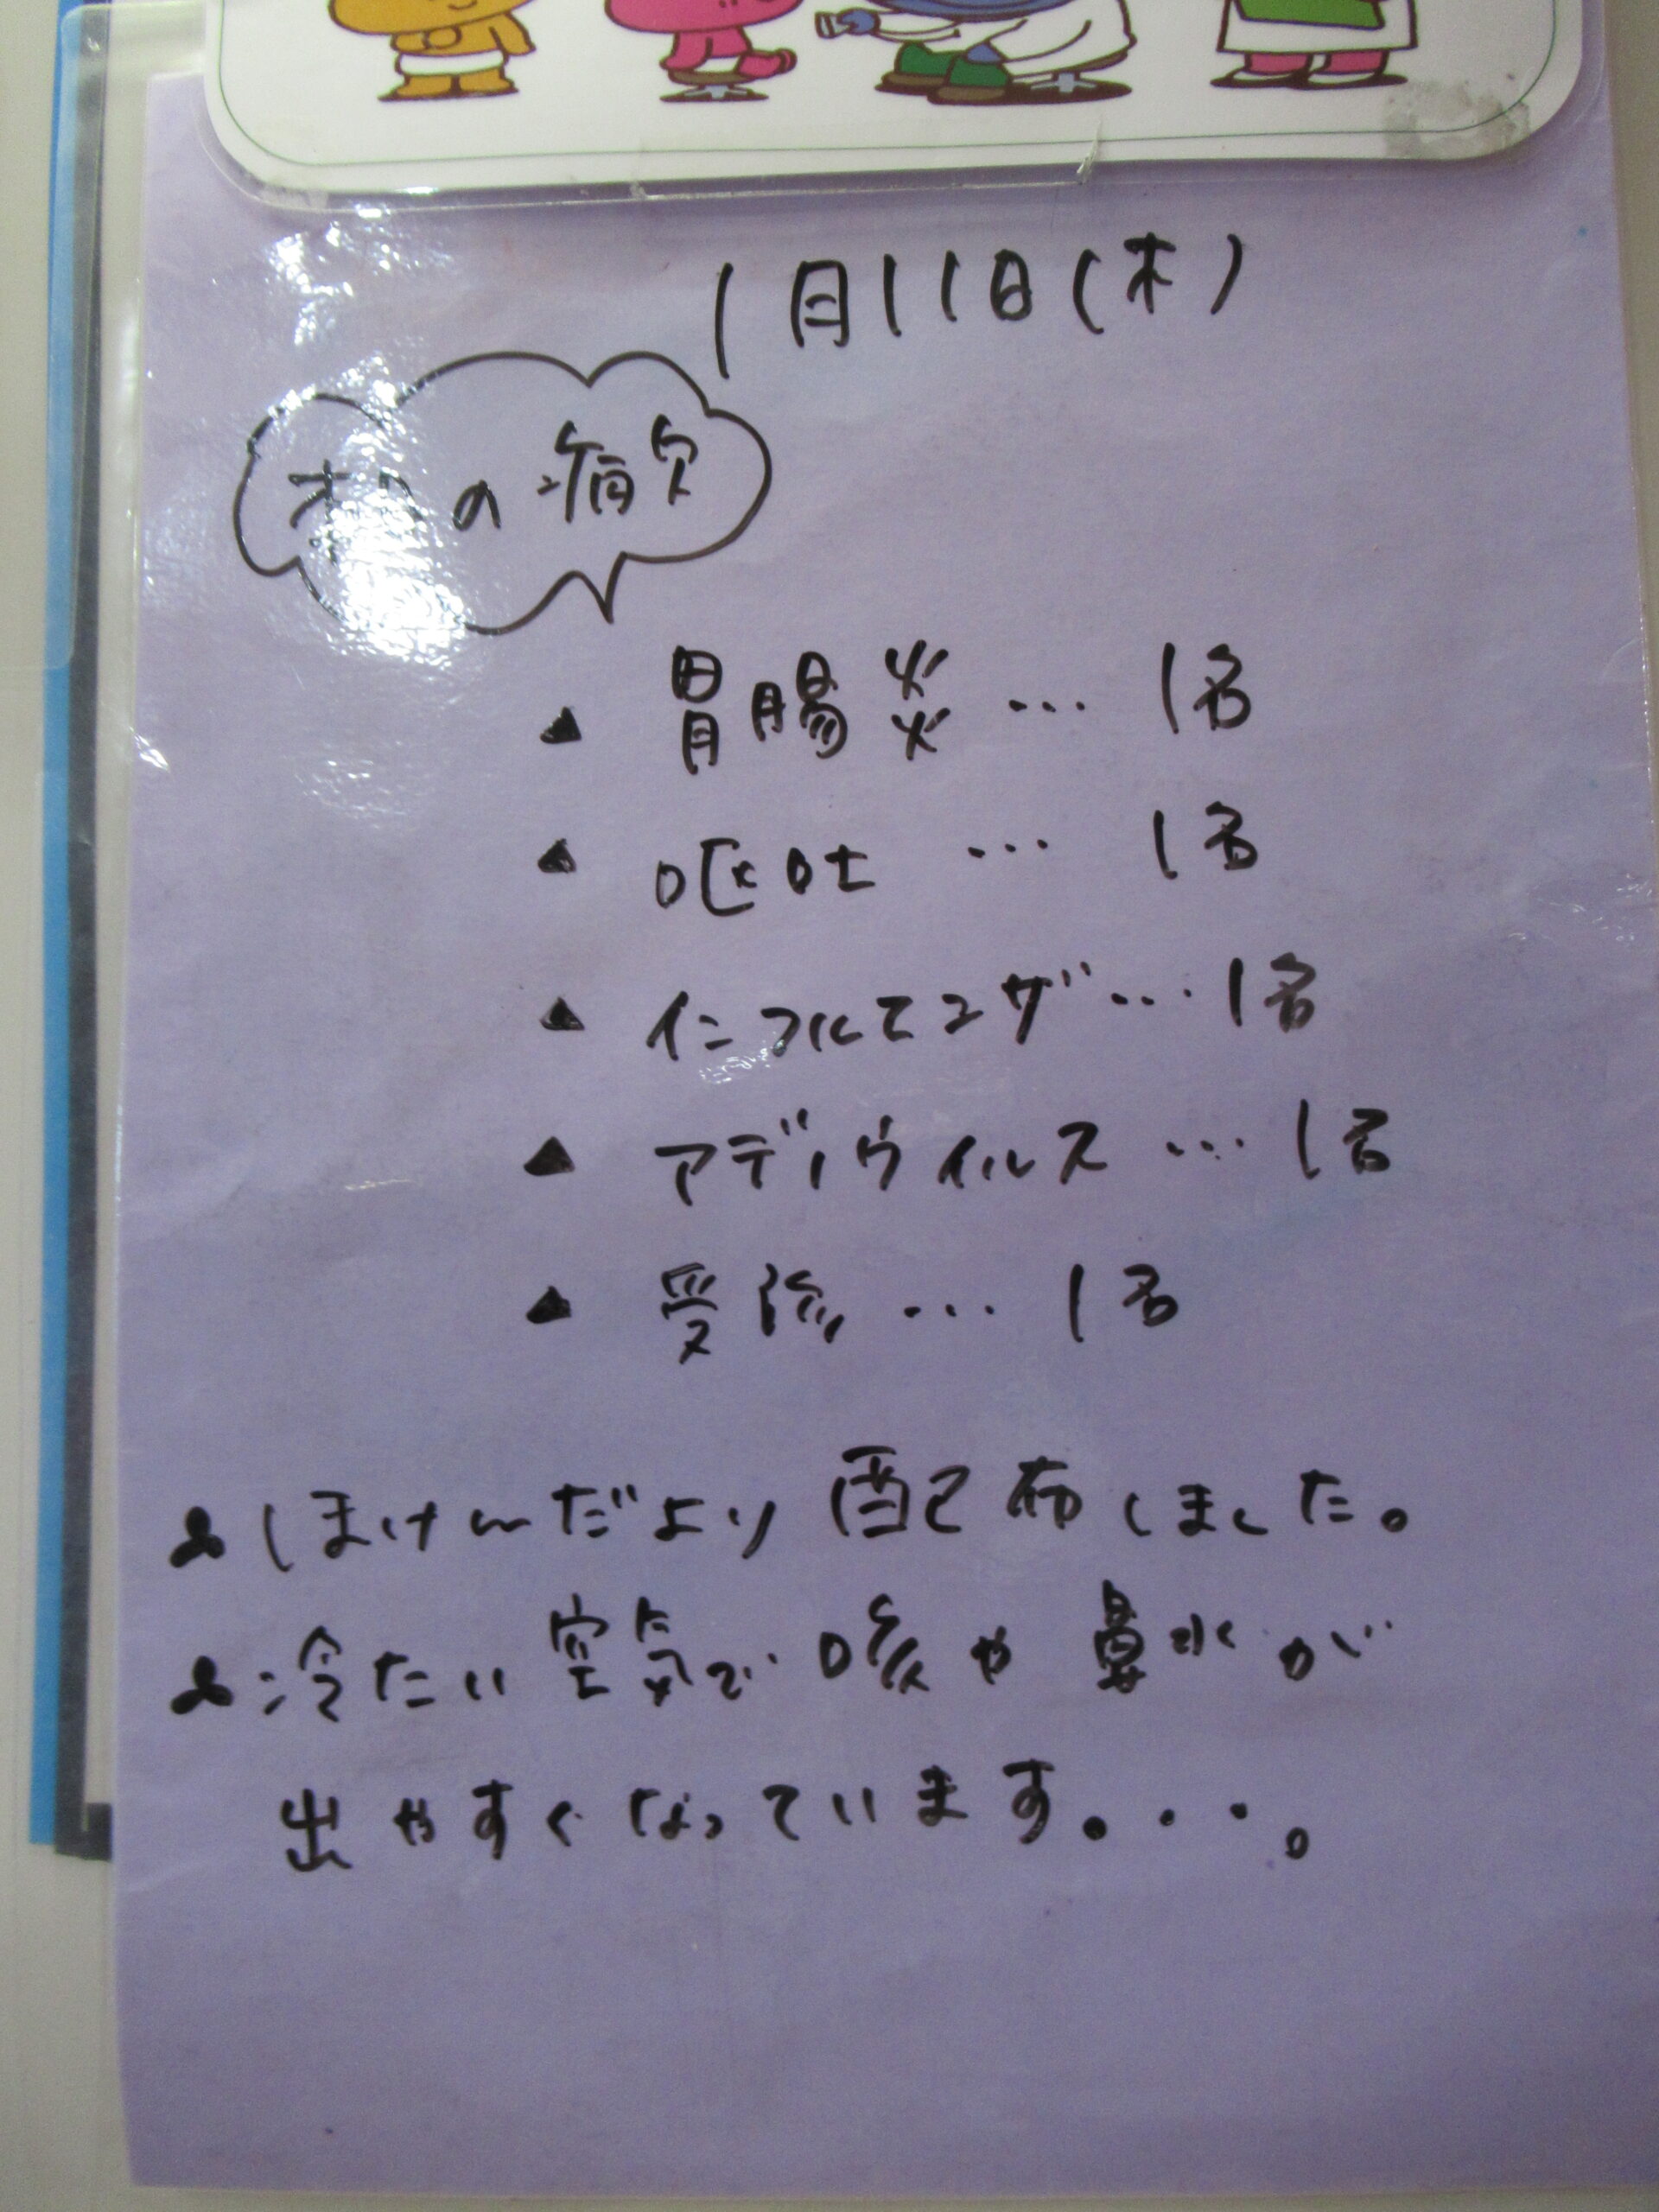 1月11日(木)
の病欠
▲ 胃腸炎… 1名
▲ 嘔吐 … 1名
▲ インフルエンザ… 1名
▲ アデノウイルス … 1名
▲ 受診 … 1名
しほけんだより配布しました。
冷たい空気で咳や鼻水が
出やすくなっています。・・。